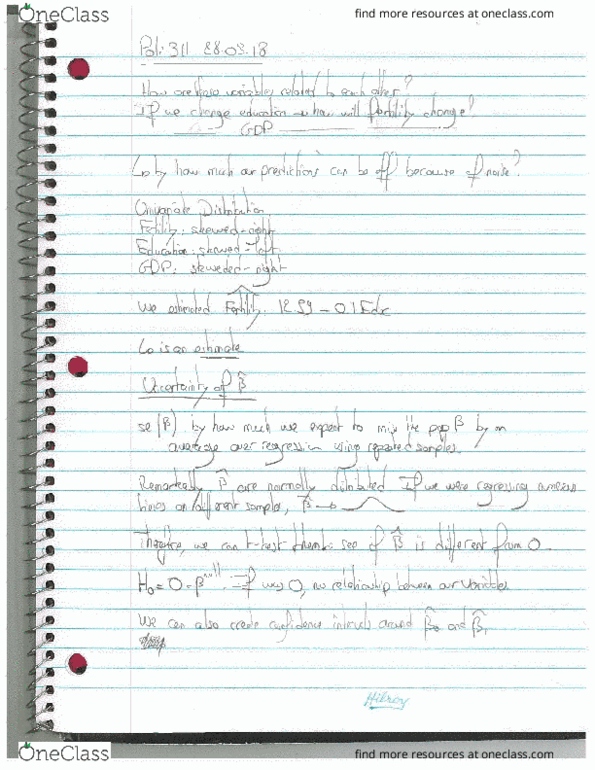 OneClass
find more resources at oneclass.com
Pol. 311 28.03.18
How are these variables related to each other?
If we change education → how will fertility change?
GDP
↳ by how much our predictions can be off because of noise?
Univariate Distribution
Fertility: skewed-right
Education: skewed-left
GDP: skeweded-right
We estimated Fertility: 12.59 - 0.1 Edx
↳ is an estimate
Uncertainty of β̂
se(β̂). by how much we expect to miss the pop β by on
average over regression using repeated samples.
Remarkably β̂ are normally distributed If we were regressing
times on different samples, β̂ →
Therefore, we can t-test them: see if β̂ is different from 0.
H₀ = 0 = β null If was 0, no relationship between our variables
We can also create confidence intervals around β̂₀ and β̂₁
Hilroy
OneClass
find more resources at oneclass.com